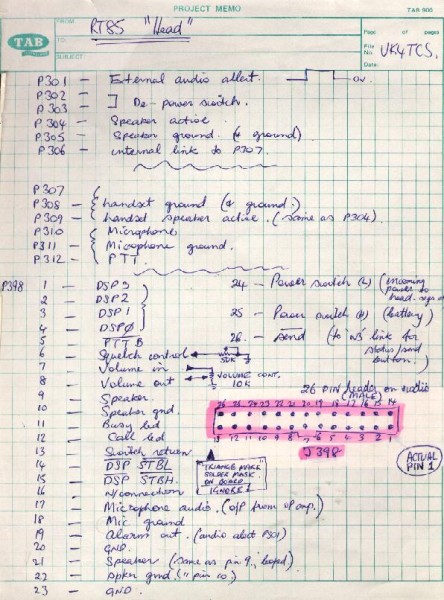 PROJECT MEMO
TAB 500
TAB
FROM
TO:
SUBJECT
RT85 "Head"
Page of pages
File No.
VK4TCS,
Date:
P301 - External audio alert. 0v.
P302 -
P303 - ] De-power switch.
P304 - Speaker active
P305 - Speaker ground. (& ground)
P306 - internal link to P307.
P307
P308 - handset ground (& ground.)
P309 - handset speaker active. (same as P304).
P310 - Microphone
P311 - Microphone ground.
P312 - PTT.
P398
1 - DSP3
2 - DSP2
3 - DSP1
4 - DSP0
5 - PTT B
6 - Squelch control 50K
7 - Volume in
8 - Volume out VOLUME CONT. 10K
9 - Speaker.
10 - Speaker gnd.
11 - Busy led
12 - Call led
13 - Switch return
14 - DSP STBL
15 - DSP STBH.
16 - N/connection
17 - Microphone audio. (O/P from OP amp.)
18 - Mic ground
19 - Alarm out. (audio alert P301)
20 - GND.
21 - Speaker (same as pin 9, looped)
22 - spkr gnd. (" pin 10)
23 - GND.
24 - Power switch (incoming power to head.
25 - Power switch (battery)
26 - Send (to link for status/send button.)
26 PIN header on radio
(MALE)
26 25 24 23 22 21 20 19 18 17 16 15 14
13 12 11 10 9 8 7 6 5 4 3 2 1
J398
ACTUAL PIN 1
TRIANGE MARK
SOLDER MASK
ON BOARD.
IGNORE!